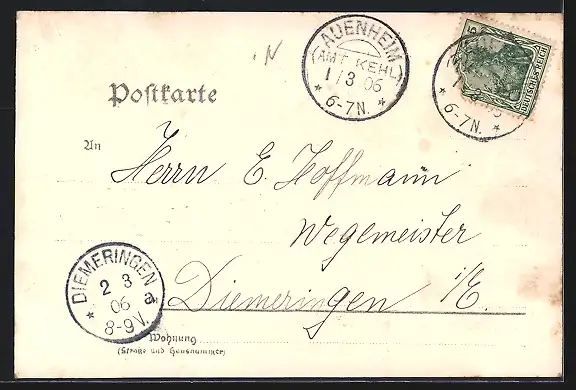 AUENHEIM
(AMT KEHL)
1/3 06
* 6-7N. *
5
DEUTSCHES REICH
* 6-7N. *
Postkarte
An
Herrn E. Hoffmann
Wegemeister
Diemeringen i/E.
DIEMERINGEN
2 3
06
* a
8-9V.
Wohnung
(Straße und Hausnummer)